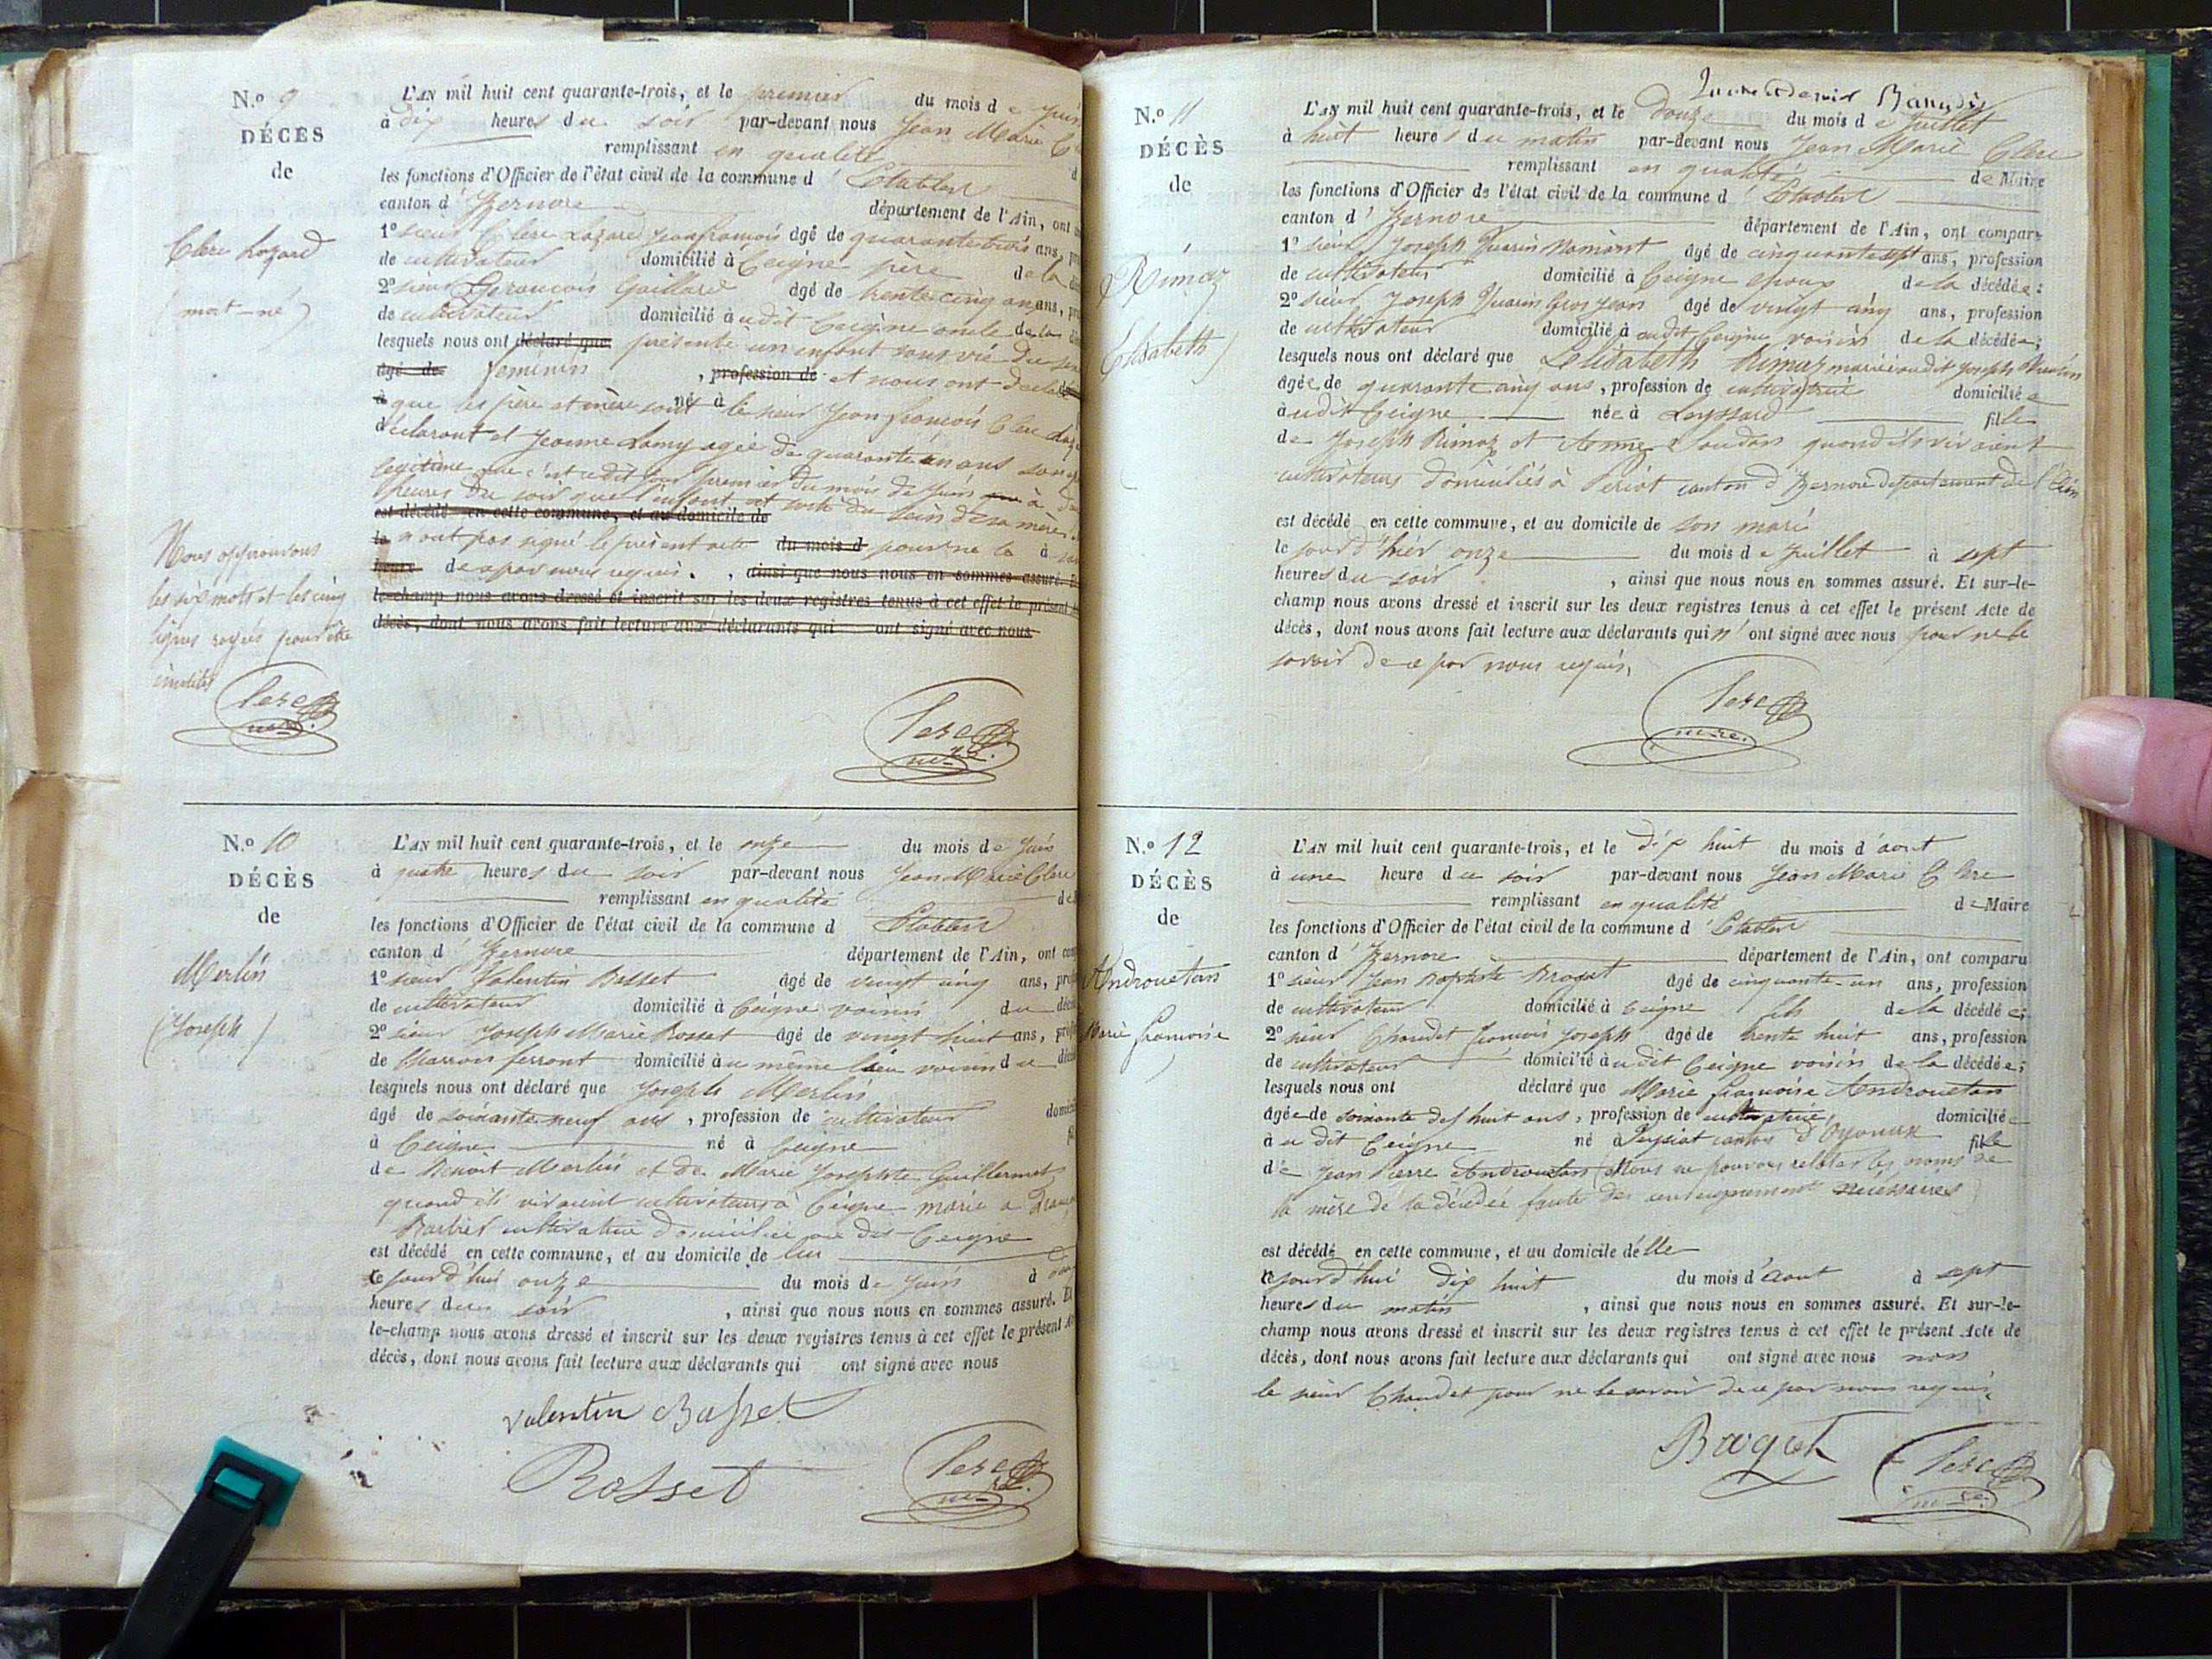 N.o 9
DÉCÈS
de
Clerc Lazard
(mort-né)
L'AN mil huit cent quarante-trois, et le premier du mois de Juin
à dix heures du soir par-devant nous Jean Marie
remplissant en qualité
les fonctions d'Officier de l'état civil de la commune d'
canton d'Izernore département de l'Ain, ont
1° sieur Clerc Lazare Jean françois âgé de quarante trois ans,
de cultivateur domicilié à Ceigne père de la
2° sieur françois Gaillard âgé de trente cinq ans ans,
de cultivateur domicilié audit Ceigne oncle de la
lesquels nous ont déclaré que présenté un enfant sans vie du
âgé de féminin , profession de et nous ont déclaré
à que les père et mère sont né à le sieur Jean françois Clerc
déclarant et Jeanne Lamy agée de quarante un ans son
légitime que c'est cedit jour premier du mois de Juin à
heures du soir que l'enfant est sorti du sein de sa mère
est décédé en cette commune, et au domicile de
n'ont pas signé le présent acte du mois d pour ne le à
heure de ce par nous requis. , ainsi que nous nous en sommes assuré.
le-champ nous avons dressé et inscrit sur les deux registres tenus à cet effet le présent
décès, dont nous avons fait lecture aux déclarants qui ont signé avec nous
Nous approuvons
les six mots et les cinq
lignes rayées pour être
inutiles
Clerc
mre.
Clerc
mre.
N.o 10
DÉCÈS
de
Merlin
(Joseph)
L'AN mil huit cent quarante-trois, et le onze du mois de Juin
à quatre heures du soir par-devant nous Jean Marie Clerc
remplissant en qualité de
les fonctions d'Officier de l'état civil de la commune d
canton d'Izernore département de l'Ain, ont
1° sieur Valentin Basset âgé de vingt cinq ans,
de cultivateur domicilié à Ceigne voisin du
2° sieur Joseph Marie Rosset âgé de vingt huit ans,
de Charron ferrant domicilié au même lieu voisin du
lesquels nous ont déclaré que Joseph Merlin
âgé de soixante neuf ans , profession de cultivateur
à Ceigne né à Ceigne
de Benoit Merlin et de Marie Josephte Guillermet
quand ils vivaient cultivateurs à Ceigne marié a
Barbier cultivatrice domiciliée au dit Ceigne
est décédé en cette commune, et au domicile de lui
ce jourd'hui onze du mois de Juin à
heures du soir , ainsi que nous nous en sommes assuré. Et
le-champ nous avons dressé et inscrit sur les deux registres tenus à cet effet le présent
décès, dont nous avons fait lecture aux déclarants qui ont signé avec nous
Valentin Basset
Rosset
Clerc
mre.
N.o 11
DÉCÈS
de
Rimaz
Elisabeth)
L'AN mil huit cent quarante-trois, et le douze du mois de Juillet
à huit heures du matin par-devant nous Jean Marie Clerc
remplissant en qualité de Maire
les fonctions d'Officier de l'état civil de la commune d'
canton d'Izernore département de l'Ain, ont compar
1° sieur Joseph âgé de cinquante sept ans, profession
de cultivateur domicilié à Ceigne epoux de la décédée:
2° sieur Joseph âgé de vingt cinq ans, profession
de cultivateur domicilié à audit Ceigne voisin de la décédée;
lesquels nous ont déclaré que Rimaz mariée audit Joseph
âgée de quarante cinq ans , profession de cultivatrice domiciliée
audit Ceigne née à Leyssard fille
de Joseph Rimaz et Anne quand ils vivaient
cultivateurs domiciliés à canton d'Izernore departement de l'Ain
est décédé en cette commune, et au domicile de son mari
le jour d'hier onze du mois de Juillet à sept
heures du soir , ainsi que nous nous en sommes assuré. Et sur-le-
champ nous avons dressé et inscrit sur les deux registres tenus à cet effet le présent Acte de
décès, dont nous avons fait lecture aux déclarants qui n'ont signé avec nous pour ne le
savoir de ce par nous requis,
Clerc
mre.
N.o 12
DÉCÈS
de
Androuetan
Marie françoise
L'AN mil huit cent quarante-trois, et le dix huit du mois d'aout
à une heure du soir par-devant nous Jean Marie Clerc
remplissant en qualité de Maire
les fonctions d'Officier de l'état civil de la commune d'
canton d'Izernore département de l'Ain, ont comparu
1° sieur Jean Baptiste âgé de cinquante-un ans, profession
de cultivateur domicilié à Ceigne fils de la décédée;
2° sieur Chaudet françois Joseph âgé de trente huit ans, profession
de cultivateur domicilié audit Ceigne voisin de la décédée;
lesquels nous ont déclaré que Marie françoise Androuetan
âgée de soixante dix huit ans, profession de cultivatrice, domiciliée
à u dit Ceigne né à canton d'Oyonnax fille
de Jean Pierre Androuetan (Nous ne pouvons relater les noms de
la mère de la décédée faute des renseignements nécessaires)
est décédé en cette commune, et au domicile d'elle
ce jourd'hui dix huit du mois d'Aout à sept
heures du matin , ainsi que nous nous en sommes assuré. Et sur-le-
champ nous avons dressé et inscrit sur les deux registres tenus à cet effet le présent Acte de
décès, dont nous avons fait lecture aux déclarants qui ont signé avec nous non
le sieur Chaudet pour ne le savoir de ce par nous requis.
Clerc
mre.